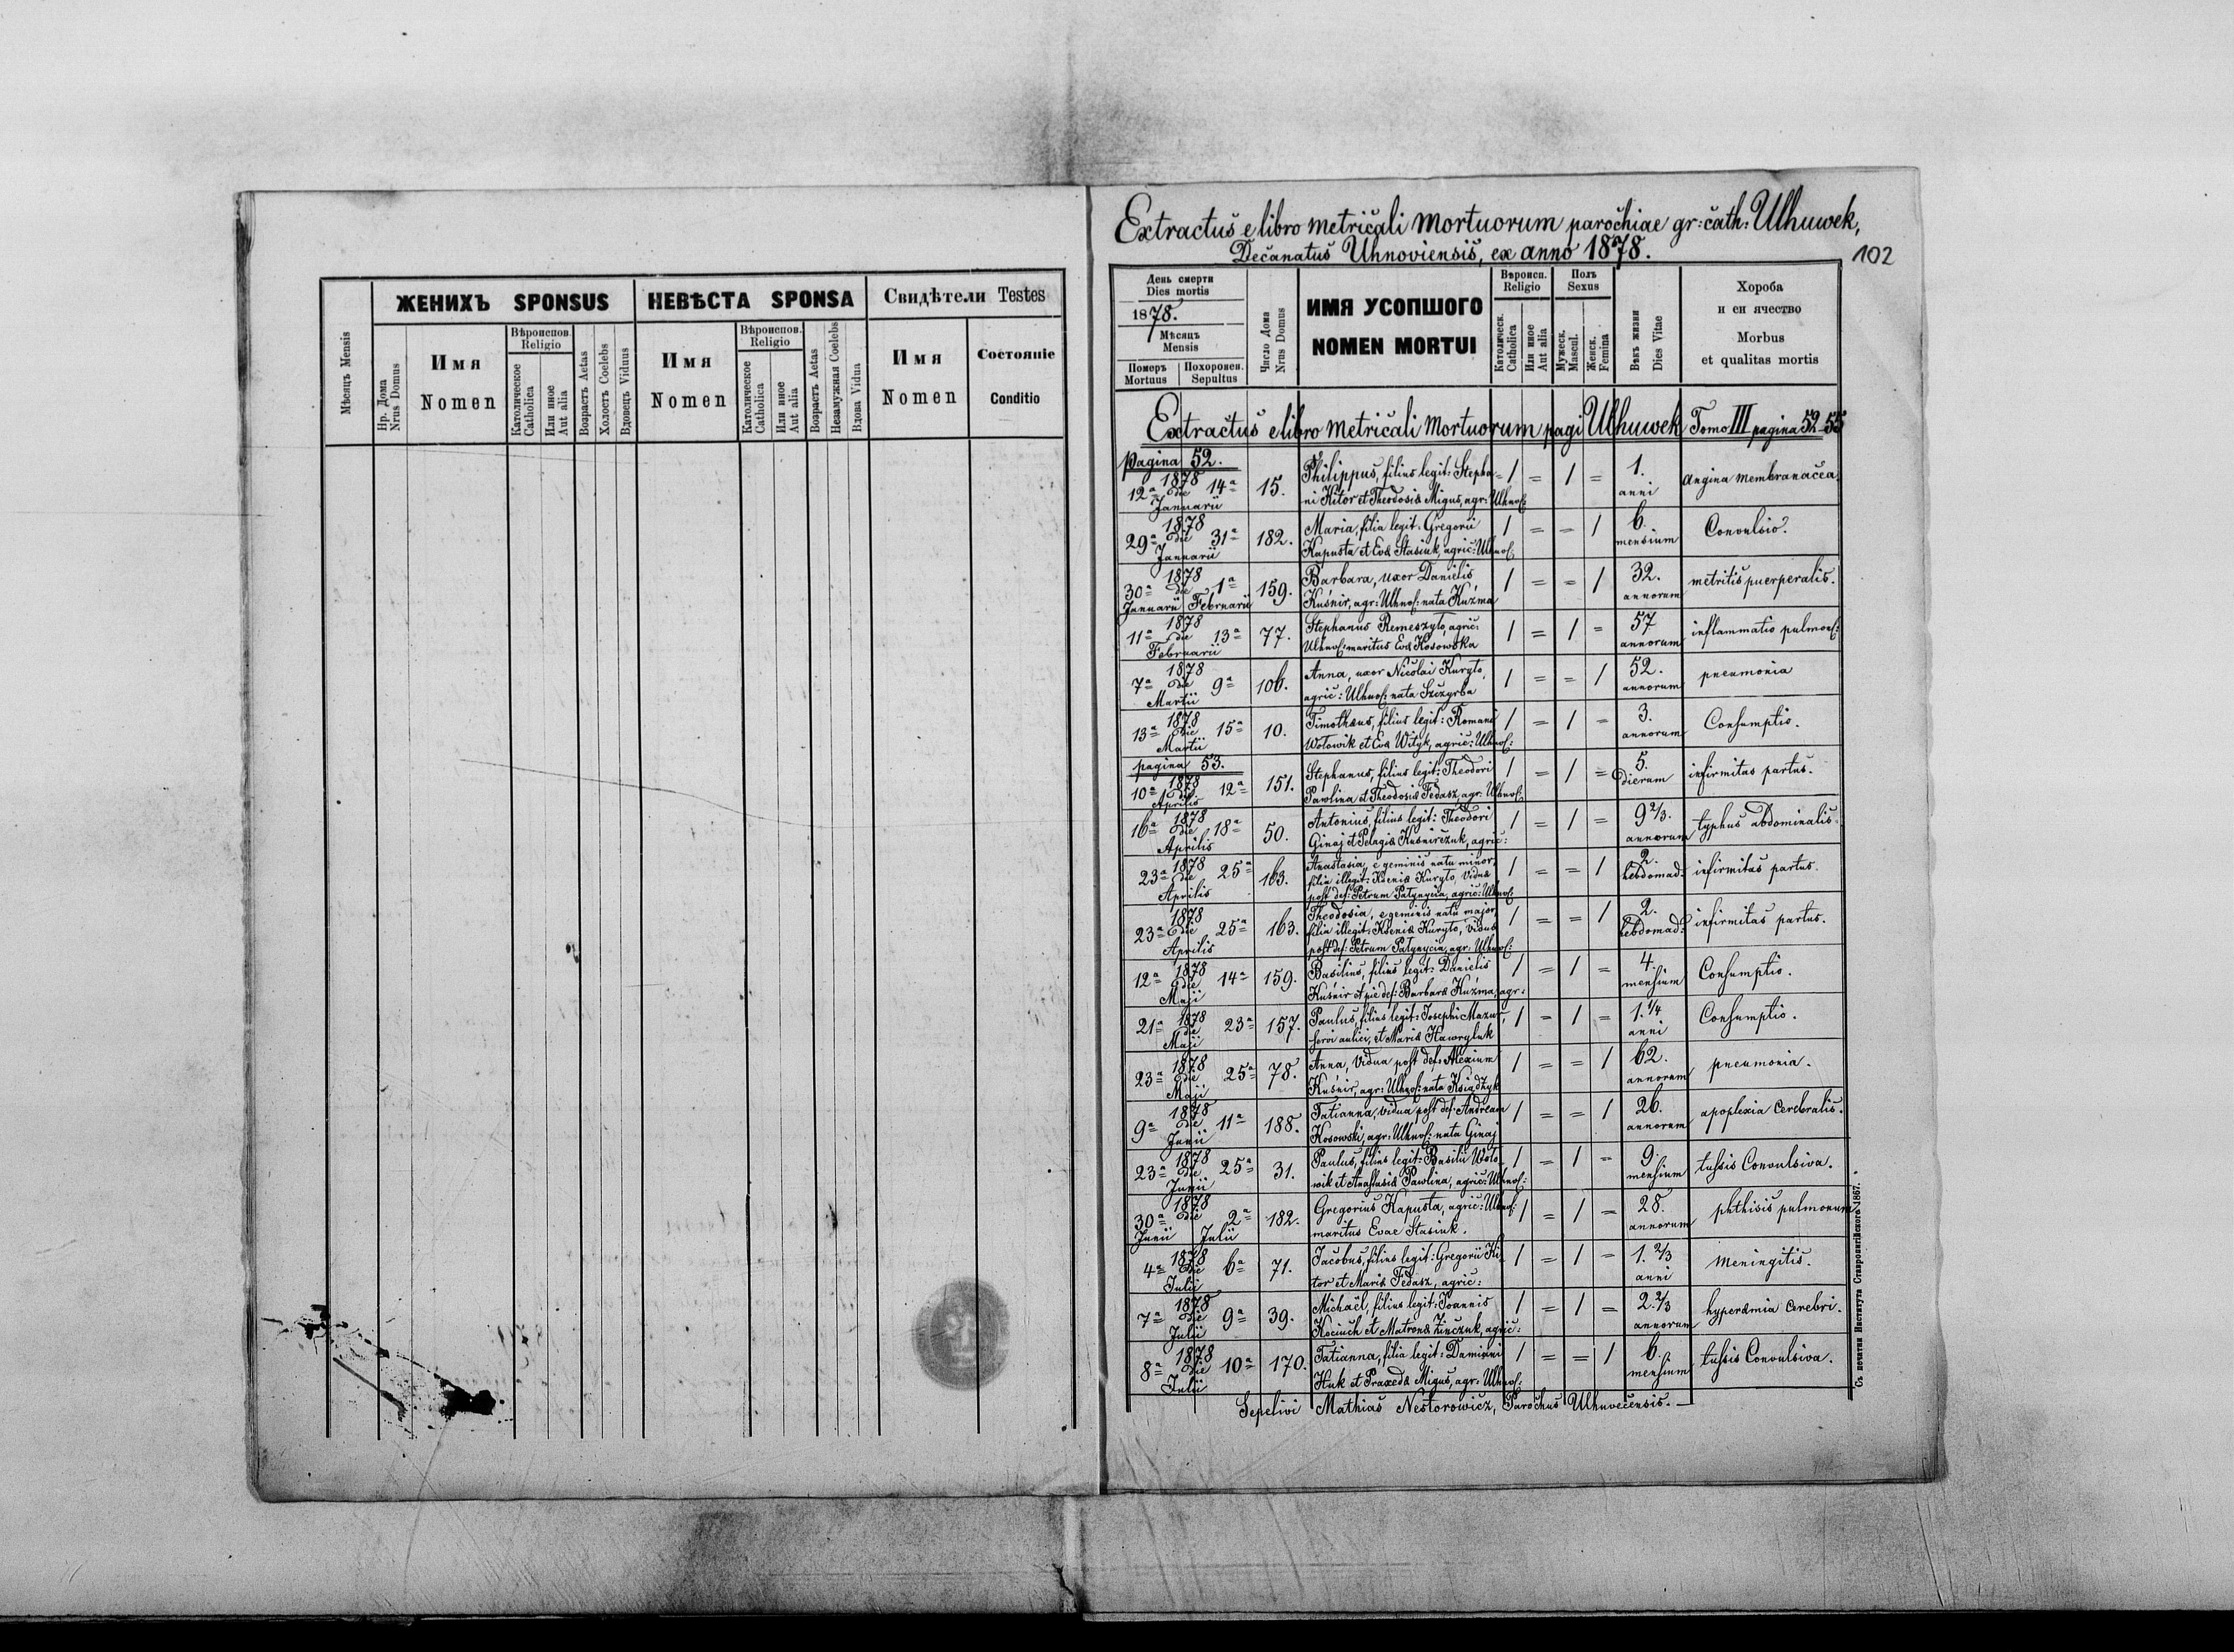 ЖЕНИХЪ SPONSUS
НЕВѢСТА SPONSA
Свидѣтели Testes
Мѣсяцъ Mensis
Нр. Дома
Nrus Domus
Имя
Nomen
Вѣроиспов.
Religio
Католическое
Catholica
Или иное
Aut alia
Возрастъ Aetas
Холостъ Coelebs
Вдовецъ Viduus
Имя
Nomen
Вѣроиспов.
Religio
Католическое
Catholica
Или иное
Aut alia
Возрастъ Aetas
Незамужная Coelebs
Вдова Vidua
Имя
Nomen
Состоянiе
Conditio
Extractus e libro metricali mortuorum parochiae gr: cath: Ulhuwek,
Decanatus Uhnoviensis, ex anno 1878.
102
День смерти
Dies mortis
1878.
Мѣсяцъ
Mensis
Померъ
Mortuus
Похоронен.
Sepultus
Число Дома
Nrus Domus
ИМЯ УСОПШОГО
NOMEN MORTUI
Вѣроисп.
Religio
Католическ.
Catholica
Или иное
Aut alia
Полъ
Sexus
Мужеск.
Mascul.
Женск.
Femina
Вѣкъ жизни
Dies Vitae
Хороба
и еи ячество
Morbus
et qualitas mortis
Extractus e libro metricali mortuorum pagi Ulhuwek Tomo III pagina 52-55
pagina 52.
1878
12ª die 14ª 15. Philippus, filius legit: Stepha- 1 = 1 = 1. angina membranacea.
Januarii ni Kitor et Theodosia Migus, agr: Ulhnof: anni
1878
29ª die 31ª 182. Maria, filia legit: Gregorii 1 = = 1 6. Convulsio.
Januarii Kapusta et Eva Stasiuk, agric: Ulhnof: mensium
1878
30ª die 1ª 159. Barbara, uxor Danielis 1 = = 1 32. metritis puerperalis.
Januarii Februarii Kuśnir, agr: Ulhnof: nata Kuźma annorum
1878
11ª die 13ª 77. Stephanus Remeszyło, agric: 1 = 1 = 57 inflammatio pulmon:
Februarii Ulhnof: maritus Eva Kosowska annorum
1878
7ª die 9ª 106. Anna, uxor Nicolai Kuryło, 1 = = 1 52. pneumonia
Martii agric: Ulhnof: nata Szczyrba annorum
1878
13ª die 15ª 10. Timothaeus, filius legit: Romani 1 = 1 = 3. Consumptio.
Martii Wołowik et Eva Wityk, agric: Ulhnof: annorum
pagina 53.
1878
10ª die 12ª 151. Stephanus, filius legit: Theodori 1 = 1 = 5. infirmitas partus.
Aprilis Pawlina et Theodosia Fedasz, agr: Ulhnof: dierum
1878
16ª die 18ª 50. Antonius, filius legit: Theodori 1 = 1 = 9 2/3. typhus abdominalis.
Aprilis Ginaj et Pelagia Kuśnirczuk, agric: annorum
1878
23ª die 25ª 163. Anastasia, e geminis natu minor, 1 = = 1 2. infirmitas partus.
filia illegit: Ksenia Kuryło, vidua hebdomad:
Aprilis post def: Petrum Patynycia, agric: Ulhnof:
1878
23ª die 25ª 163. Theodosia, e geminis natu major, 1 = = 1 2. infirmitas partus.
filia illegit: Ksenia Kuryło, vidua hebdomad:
Aprilis post def: Petrum Patynycia, agr: Ulhnof:
1878
12ª die 14ª 159. Basilius, filius legit: Danielis 1 = 1 = 4. Consumptio.
Maji Kuśnir et pie def: Barbara Kuźma, agr: mensium
1878
21ª die 23ª 157. Paulus, filius legit: Josephi Mazur, 1 = 1 = 1. 1/4 Consumptio.
Maji servi aulici, et Maria Hawryluk anni
1878
23ª die 25ª 78. Anna, vidua post def: Alexium 1 = = 1 62. pneumonia.
Maji Kuśnir, agr: Ulhnof: nata Książyk annorum
1878
9ª die 11ª 188. Tatianna, vidua post def: Andream 1 = = 1 26. apoplexia cerebralis.
Junii Kosowski, agr: Ulhnof: nata Ginaj annorum
1878
23ª die 25ª 31. Paulus, filius legit: Basilii Woło- 1 = 1 = 9. tussis Convulsiva.
Junii wik et Anastasia Pawlina, agric: Ulhnof: mensium
1878
30ª die 2ª 182. Gregorius Kapusta, agric: Ulhnof: 1 = 1 = 28. phthisis pulmonum
Junii Julii maritus Evae Stasiuk. annorum
1878
4ª die 6ª 71. Jacobus, filius legit: Gregorii Ki- 1 = 1 = 1. 2/3 meningitis.
Julii tor et Maria Fedasz, agric: anni
1878
7ª die 9ª 39. Michaël, filius legit: Joannis 1 = 1 = 2. 2/3 hyperaemia cerebri.
Julii Kociuch et Matrona Zinczuk, agric: annorum
1878
8ª die 10ª 170. Tatianna, filia legit: Damiani 1 = = 1 6. tussis Convulsiva.
Julii Huk et Praxeda Migus, agr: Ulhnof: mensium
Sepelivi Mathias Nestorowicz, Parochus Ulhuvecensis.
Съ печатни Института Ставропигiйского 1867.